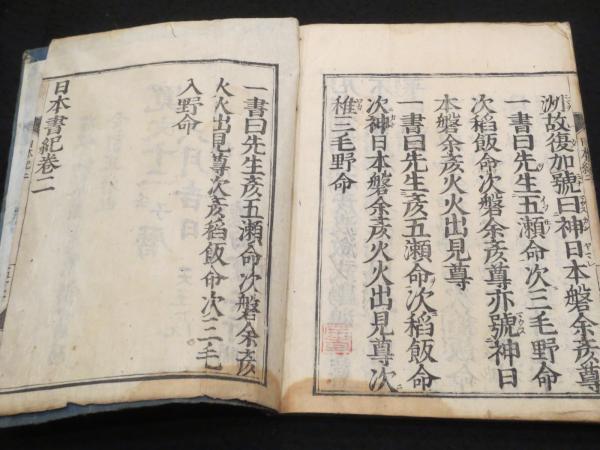 洲故復加號曰神日本磐余彦尊
一書曰先生五瀬命次三毛野命
次稻飯命次磐余彦尊亦號神日
本磐余彦火火出見尊
一書曰先生彦五瀬命次稻飯命
次神日本磐余彦火火出見尊次
稚三毛野命
一書曰先生彦五瀬命次磐余彦
火火出見尊次彦稻飯命次三毛
入野命
日本書紀卷二